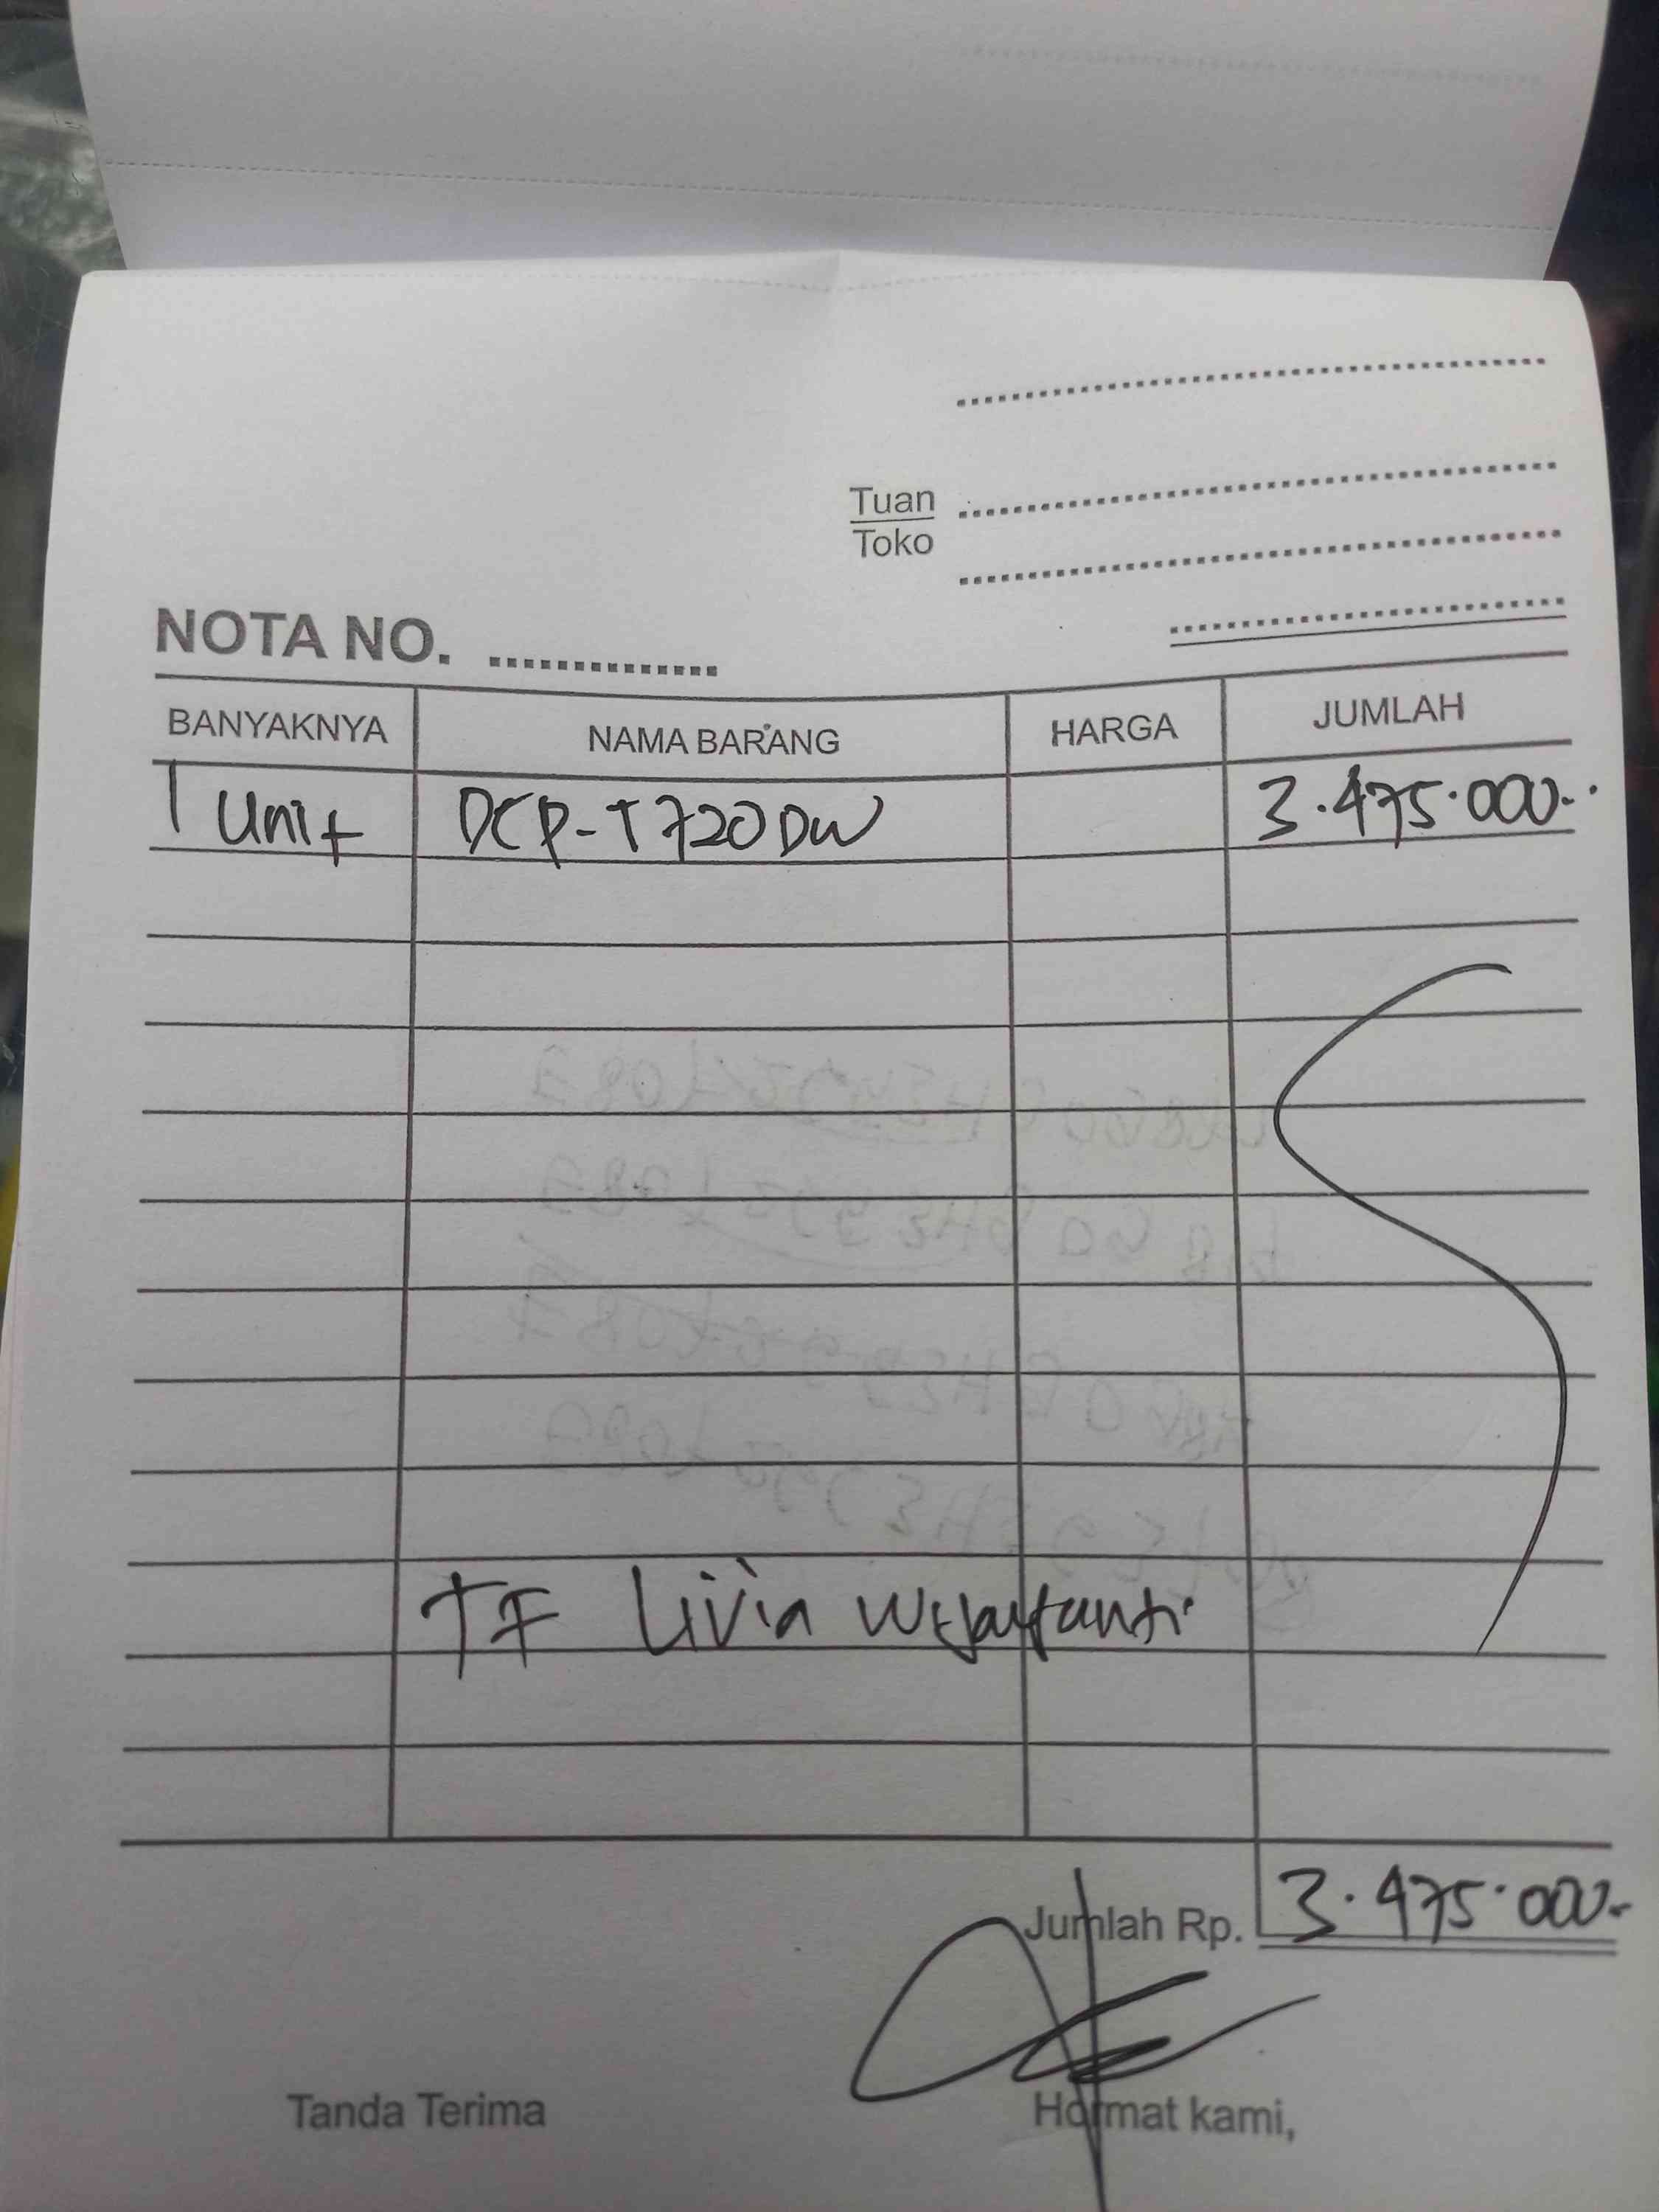 Tuan
Toko
NOTA NO.
BANYAKNYA NAMA BARANG HARGA JUMLAH
1 Unit DCP-T720DW 3.475.000-.
TF Livia
Jumlah Rp. 3.475.000-
Tanda Terima Hormat kami,